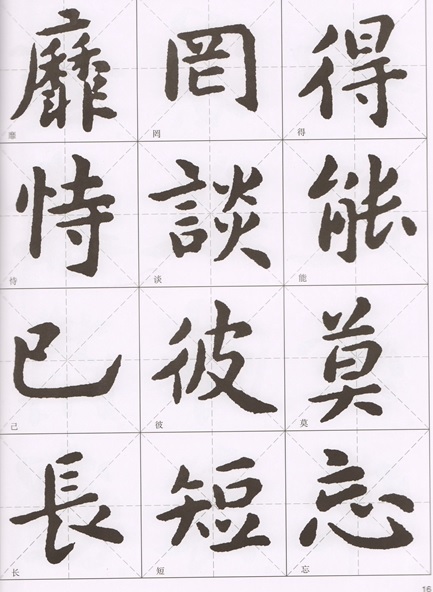 得能莫忘
罔談彼短
靡恃己長
得
能
莫
忘
罔
谈
彼
短
靡
恃
己
长
16